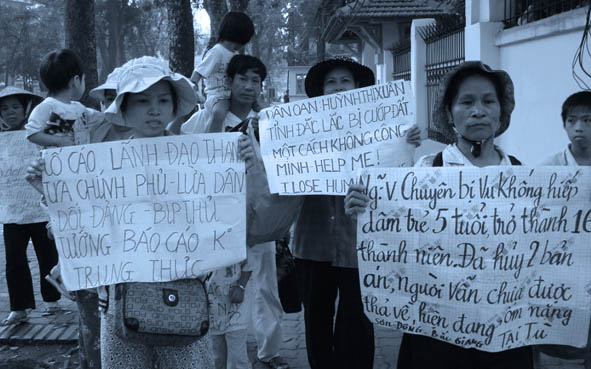 TỐ CÁO, LÃNH ĐẠO THAN
LỪA CHÍNH PHỦ - LỪA DÂN
DỐI ĐẢNG - BỊP THỦ
TƯỚNG BÁO CÁO K
TRUNG THỰC
DÂN OAN: HUỲNH THỊ XUÂN
TỈNH ĐẮC LẮC BỊ CƯỚP ĐẤT
MỘT CÁCH KHÔNG CÔNG
MINH HELP ME!
I LOSE HUM
V. Chuyện bị Vu không hiếp
dâm trẻ 5 tuổi, trở thành 16
thành niên. Đã hủy 2 bản
án, Người Vẫn chưa được
thả về, hiện đang ốm nặng
TẠI TÙ
SƠN ĐỘNG, BẮC GIANG